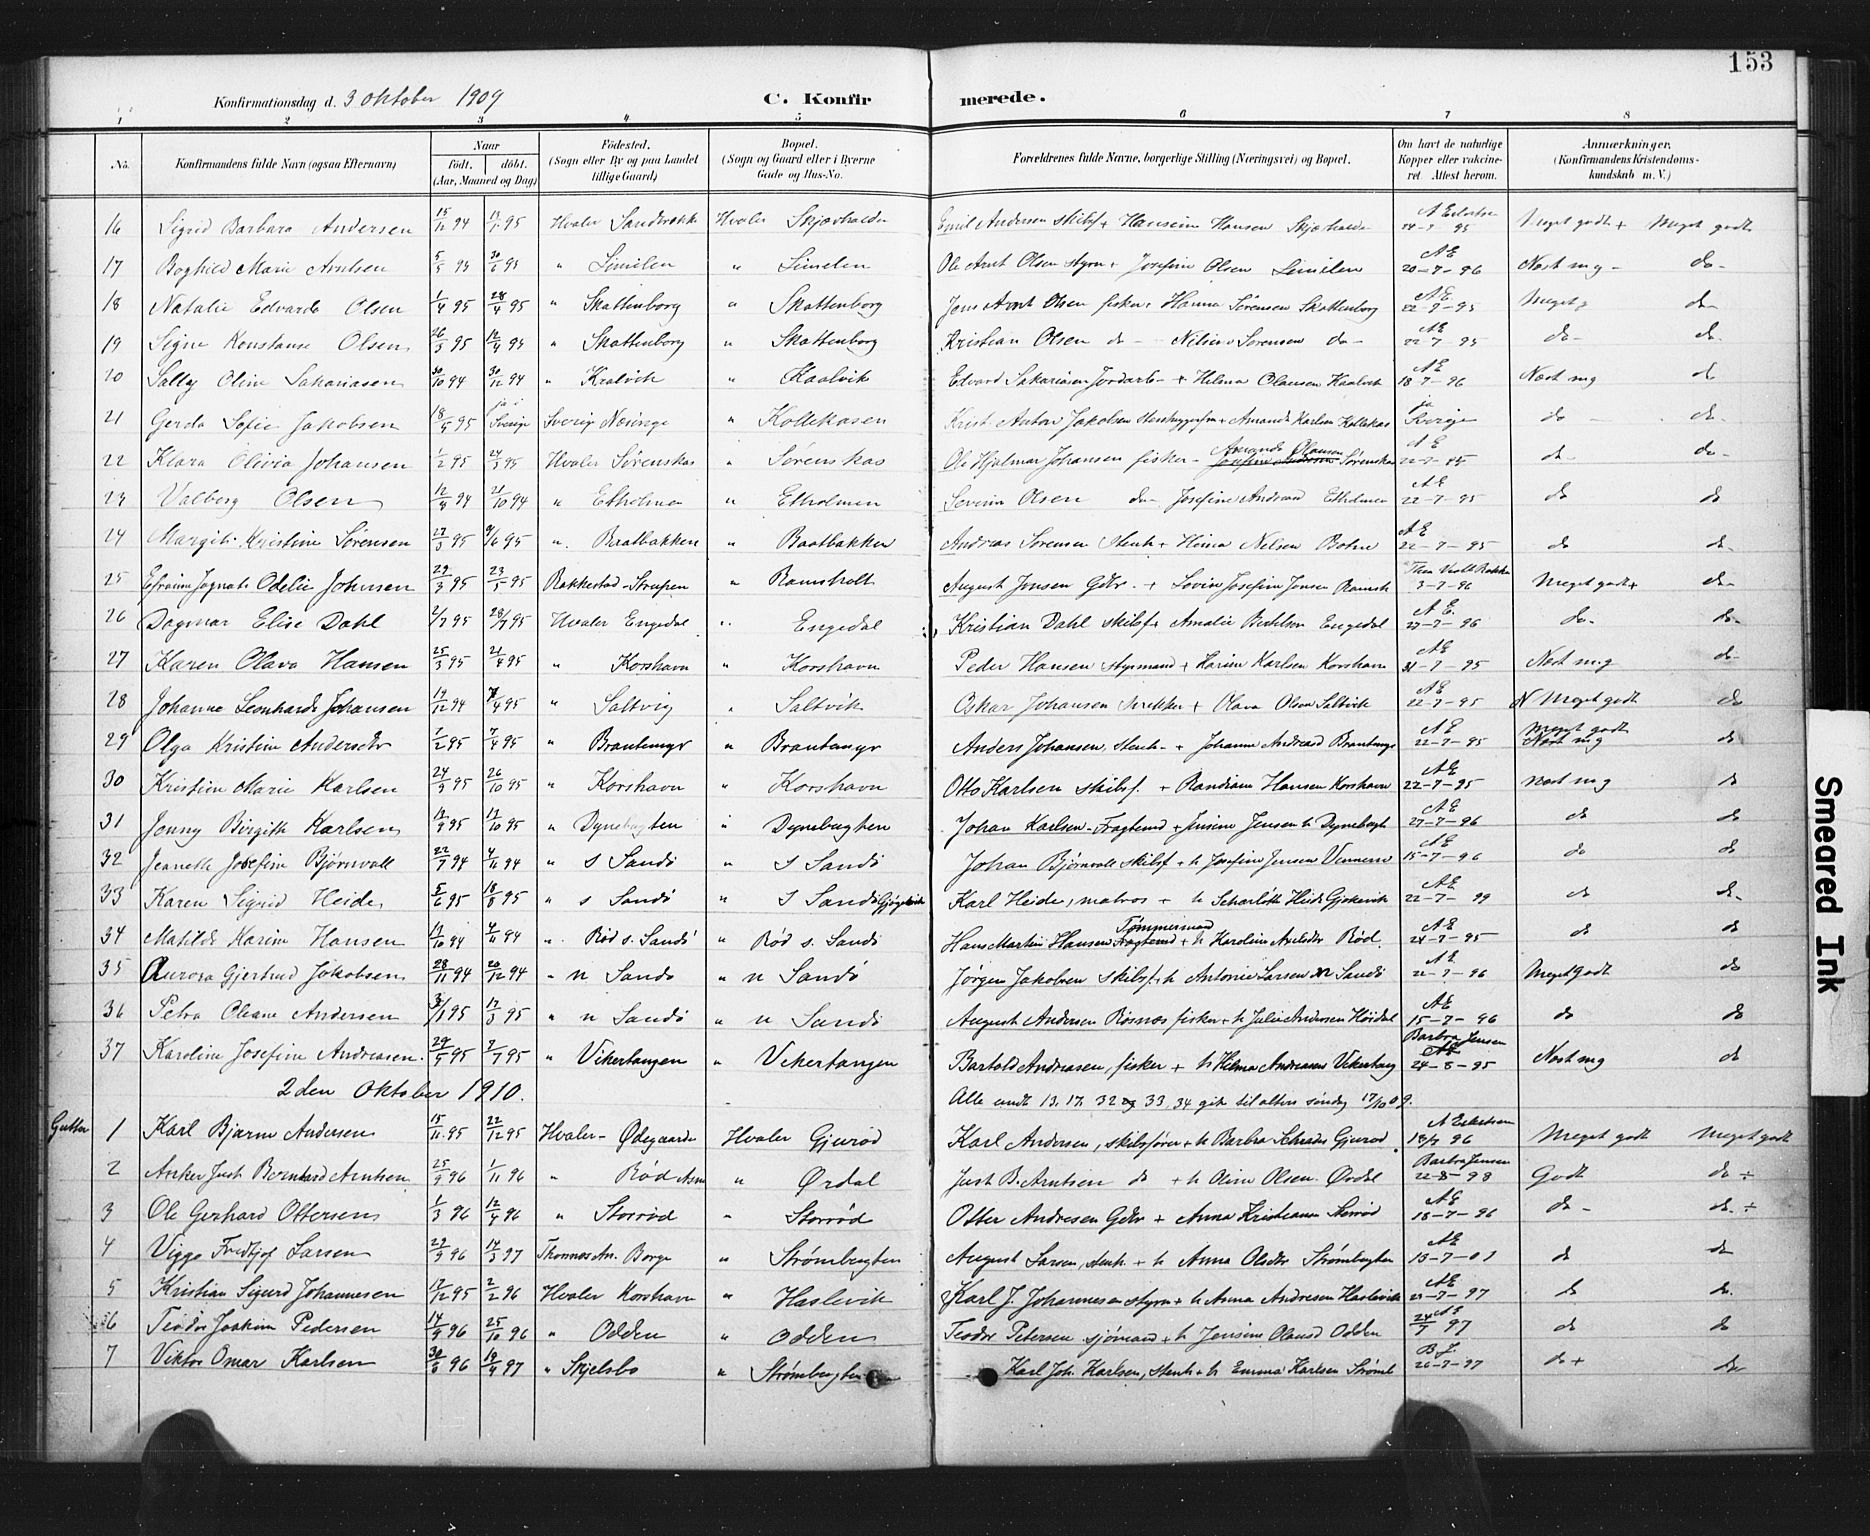 153
Konfirmationsdag d. 3 oktober 1909 C. Konfirmerede.
1 2 3 4 5 6 7 8
No. Konfirmandens fulde Navn (ogsaa Efternavn) Naar født. døbt. (Aar, Maaned og Dag) Fødested. (Sogn eller By og paa Landet tillige Gaard) Bopæl. (Sogn og Gaard eller i Byerne Gade og Hus-No. Forældrenes fulde Navne, borgerlige Stilling (Næringsvei) og Bopæl. Om havt de naturlige Kopper eller vakcineret. Attest herom. Anmærkninger, (Konfirmandens Kristendomskundskab m. V.)
16 Sigrid Barbara Andersen 15/12 94 Hvaler Hvaler Skjærhalden Emil Andersen skibsf + Hansine Hansen Meget godt + Meget godt
17 Marie Arntsen " Limilen " Limilen Ole Arnt Olsen styrm + Josefine Olsen Limilen AE 20-7-96 Næst mg - do-
18 Natalie Edvarda Olsen 1/4 95 28/4 95 " Skattenborg " Skattenborg Jens Arnt Olsen fisker, Hanna Sørensen Skattenborg AE 22-7-95 Meget g do-
19 Signe Konstanse Olsen 26/3 95 " Skattenborg " Skattenborg Kristian Olsen do - Sørensen do - AE 22-7-95 do- do
20 Sally Oline Sakariasen 30/10 94 30/12 94 " Kralvik " Kaalvik Edvard Sakariasen + Helma Olausen Kaalvik AE 18-7-96 Næst mg do
21 Gerda Sofie Jakobsen 18/4 95 ja i Sverige Sverige " Kollekasen Krist. Anton Jakobsen + Amanda Karlsen Kollekas ja Sverige do - do-
22 Klara Olivia Johansen 1/2 95 24/3 95 Hvaler Sørenskas " Sørenskas Ole Hjalmar Johansen fisker - Amanda Olausen Sørenskas AE do do-
23 Valborg Olsen 12/8 94 21/10 94 " Etholmen " Etholmen Severin Olsen do- Josefine Etholmen AE 22-7-95 do do
24 Margit Kristine Sørensen 27/3 95 9/6 95 " Baatbakken " Baatbakken Andreas Sørensen Stenh + Nilsen AE 22-7-95 do do-
25 Odelie Johnsen 29/3 95 23/5 95 Rakkestad - " Ramsholt August Jensen Gdbr. + Lovise Josefine Jensen Ramsh 3-7-96 Meget godt + do-
26 Dagmar Elise Dahl 2/7 95 28/7 95 Hvaler Engedal " Engedal Kristian Dahl skibsf + Amalie Engedal AE. 27-7-96 do- do-
27 Karen Olava Hansen 25/3 95 21/4 95 " Korshavn " Korshavn Peder Hansen styrmand + Karine Karlsen Korshavn AE 31-7-95 Næst mg do-
28 Johanne Leonharde Johansen 19/12 94 7/4 95 " Saltvig " Saltvik Oskar Johansen + Olava Olsen Saltvik AE 22-7-95 Meget godt do
29 Olga Kristine Andersdtr 1/2 95 7/4 95 " Brantemyr " Brantemyr Anders Johansen, stenh- + Johanne AE 22-7-95 Meget godt Næst mg do
30 Kristine Marie Karlsen 24/9 95 26/10 95 " Korshavn " Korshavn Otto Karlsen skibsf. + Hansen Korshavn AE 22-7-95 Næst mg do
31 Jenny Birgith Karlsen 12/9 95 " Dynebugten " Dynebugten Johan Karlsen - Fragtemd + Jensine Jensen h Dynebugt AE 27-7-96 do do
32 Jeaneth Josefine Bjørnvall 22/7 94 4/11 94 " s Sandø " S Sandø Johan Bjørnvall skibsf + h Josefine Jensen AE 15-7-96 do do
33 Karen Sigrid Heide 5/6 95 18/8 95 " s Sandø " S Sandø Karl Heide, matros + h Scharlotte Heide AE 22-7-99 do do-
34 Matilde Karine Hansen 4/11 94 " Rød s. Sandø " Rød s. Sandø Hans Martin Hansen Fragtemd Tømmermand + h Karoline Rød. AE 24-7-95 do do
35 Aurora Gjertrud Jakobsen 28/11 94 26/12 94 " n Sandø " n Sandø Jørgen Jakobsen skibsf + h Antonie Larsen n Sandø 22-7-96 Meget godt do
36 Petra Oleane Andersen 17/3 95 " n Sandø " n Sandø August Andersen Røsnæs fisker + h Julie Andersen AE 15-7-96 do do
37 Karoline Josefine Andreasen 29/5 95 7/7 95 " Vikertangen " Vikertangen Bartold Andreasen, fisker + h Helma Andreasen Barbra Jensen 24-8-95 Næst mg do
2den Oktober 1910. Alle undt 13. 17. 32 og 33. 34 gik til alters søndag 17/10 09.
Gutter 1 Karl Bjarne Andersen 15/11 95 22/12 95 Hvaler - Ødegaarden Hvaler Gjurød Karl Andersen, skibsfører + h Barbra Gjurød. 96 Meget godt Meget godt
2 Anker Just Bernhard Arntsen 25/9 96 1/11 96 " Rød " Ørdal Just B. Arntsen do + h Oline Olsen. Ørdal Barbra Jensen 22-8-98 Godt do ÷
3 Ole Gerhard Ottersen 1/3 96 12/4 96 " Storrød " Storrød Otter Andresen Gdbr + Anna Kristiansen Storrød AE 18-7-96 do - do- ÷
4 Viggo Fridtjof Larsen 29/9 96 14/3 97 Borge " Strømbugten August Larsen, stenh + h Anna Olsdtr Strømbugten AE 13-7-01 do do
5 Kristian Sigurd Johannesen 17/12 95 2/2 96 Hvaler Korshavn " Haslevik Karl J. Johannesen styrm + h Anna Andresen Haslevik AE 97 do do.
6 Teodor Joakim Pedersen 14/9 96 25/10 96 " Odden " Odden Teodor Petersen sjømand + h Jensine Odden AE 97 do do
7 Viktor Omar Karlsen 96 19/4 97 " Skjelsbo " Strømbugten Karl Joh. Karlsen, stenh + h Emma Karlsen Strømb B.J. 26-7-97 do + do
Smeared Ink